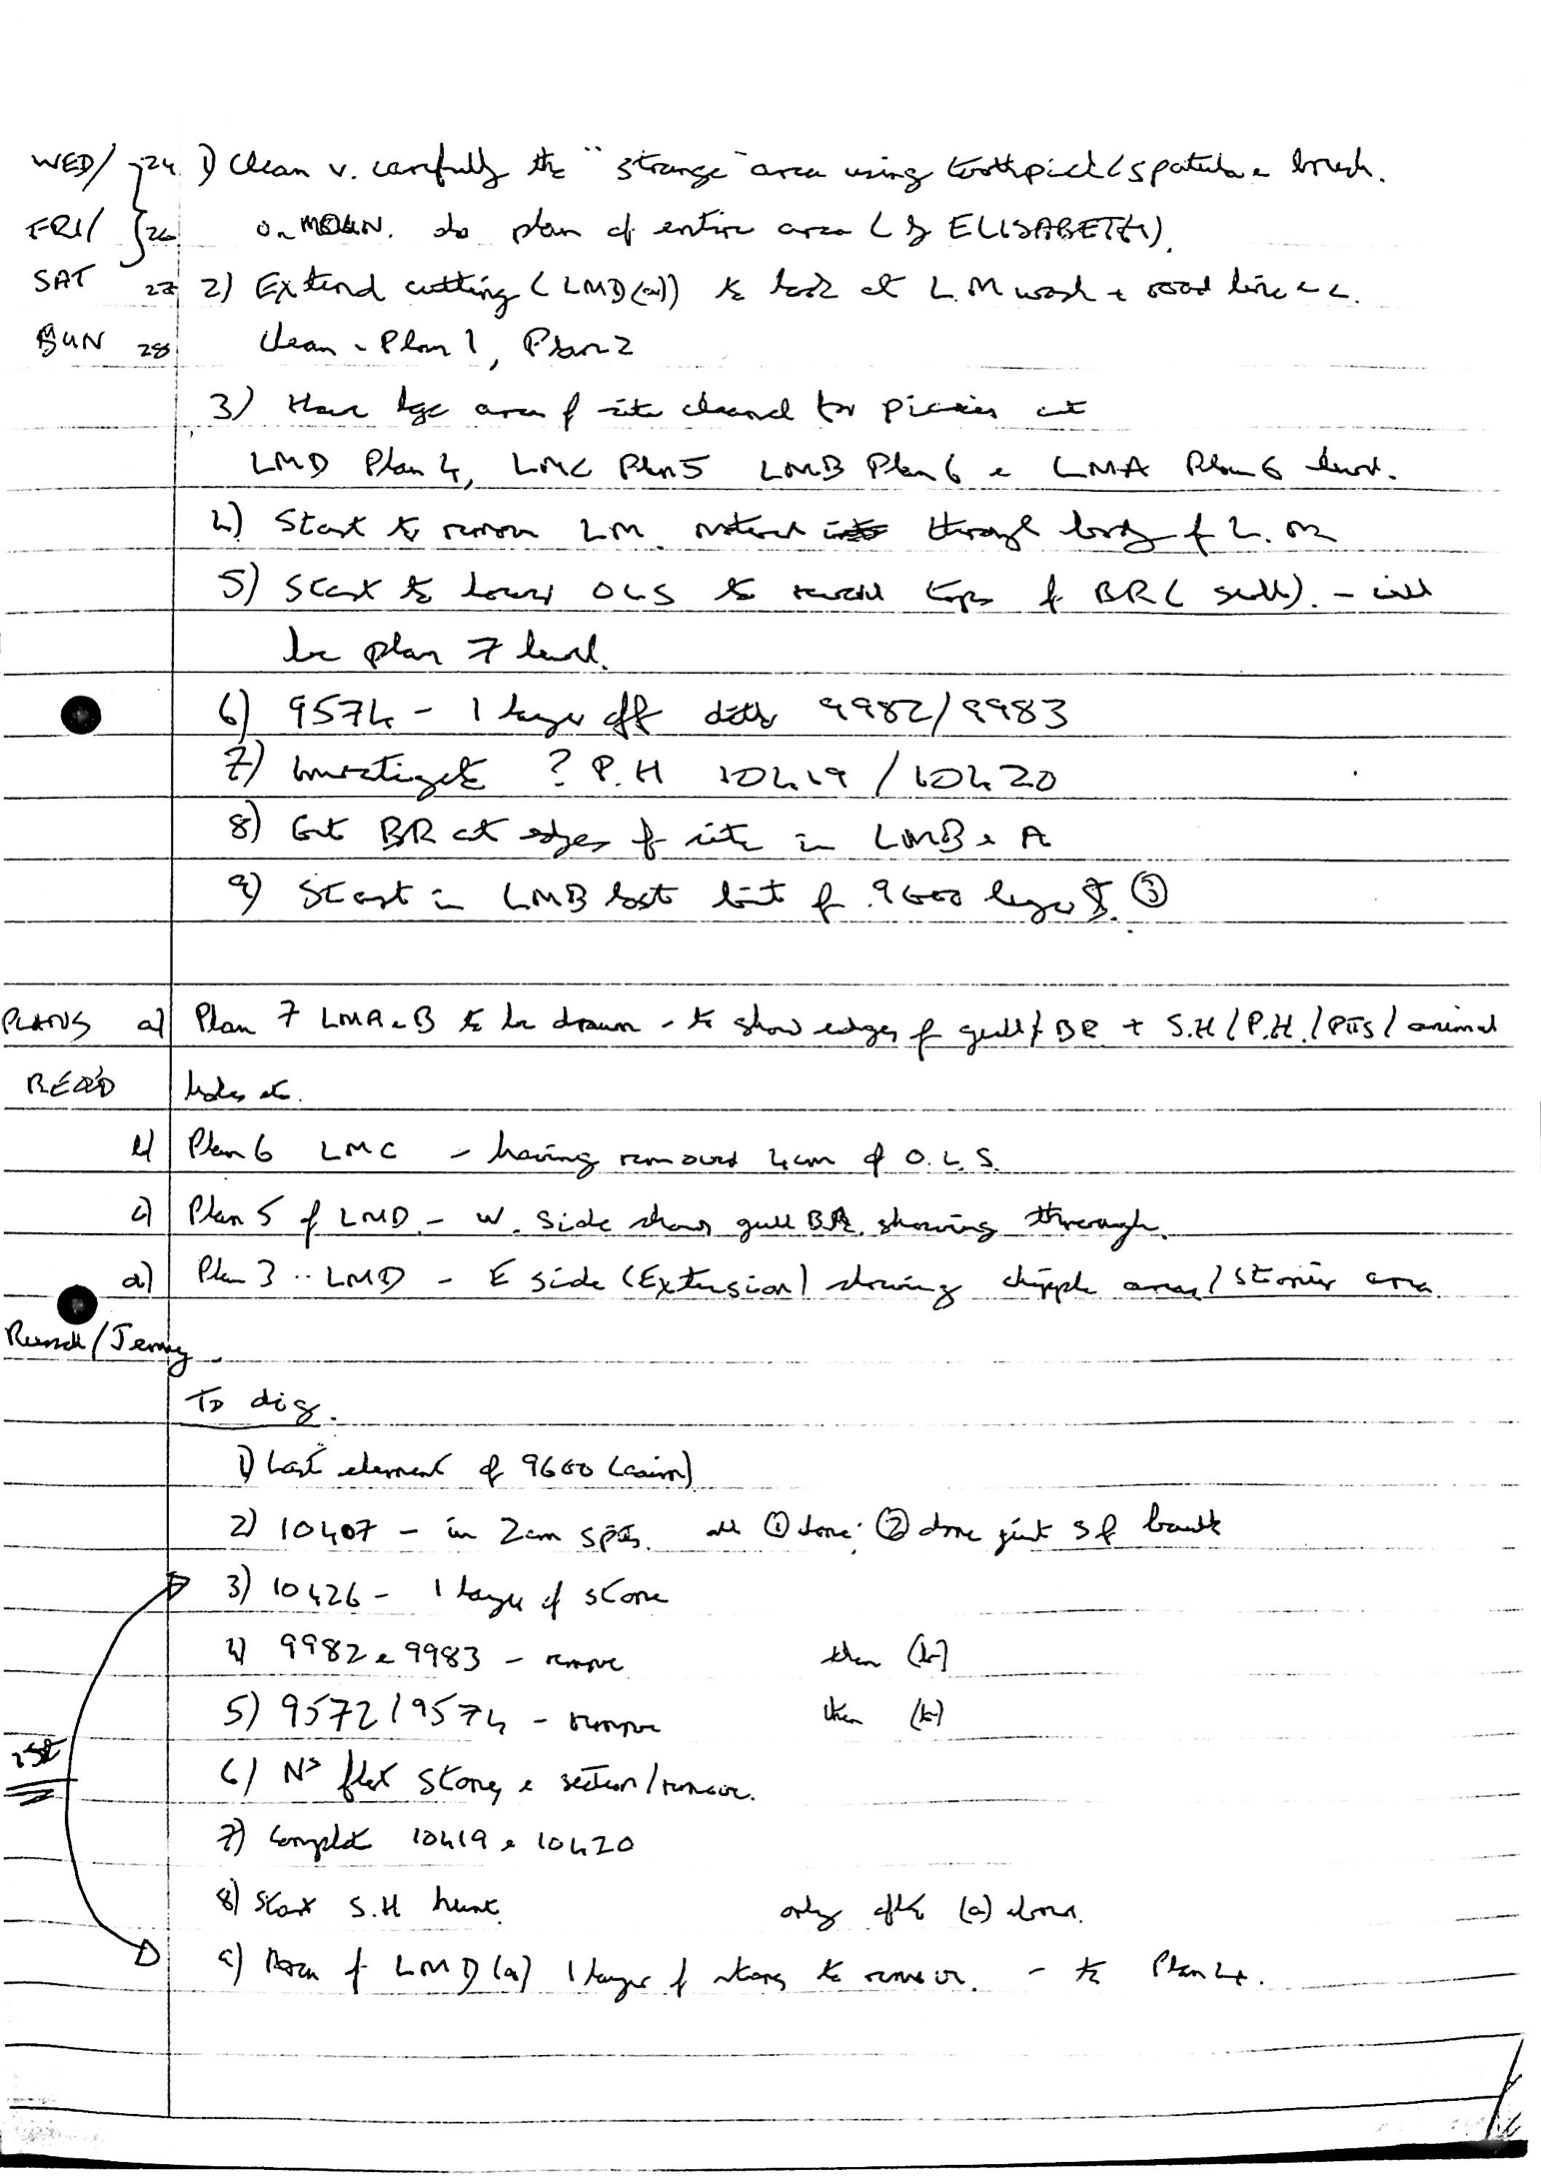 WED/ 24 1) Clean v. carefully the "strange" area using toothpick/spatula & brush.
FRI/ 26 on MOUN. do plan of entire area ( by ELISABETH).
SAT 27 2) Extend cutting (LMD(a)) to look at L.M wash + road line
SUN 28 clean - Plan 1, Plan 2
3) Have lge area of site cleaned for pictures at
LMD Plan 4, LMC Plan 5 LMB Plan 6 & LMA Plan 6 level.
4) Start to remove L.M. material through body of L.M
5) Start to lower OLS to reveal tops of BR ( gulls). - will
be plan 7 level.
6) 9574 - 1 layer off ditto 9982/9983
7) Investigate ? P.H 10419 / 10420
8) Get BR at edges of site in LMB & A
9) Start in LMB last bit of 9600 layer 3
PLANS a) Plan 7 LMA & B to be drawn - to show edges of gull/BR + S.H/P.H./Pits/animal
REQ'D holes etc.
b) Plan 6 LMC - having removed 4cm of O.L.S.
c) Plan 5 of LMD - W. side shows gull BR. showing through.
d) Plan 3 .. LMD - E side (Extension) showing chipple areas/stonier area
/Jenny.
To dig.
1) Last element of 9600 (cairn)
2) 10407 - in 2cm spits. all ① done; ② done just S of baulk
3) 10426 - 1 layer of stone
4) 9982 & 9983 - remove then (b)
5) 9572/9574 - remove then (b)
1st
6) No flat stones & section/remove.
7) Complete 10419 & 10420
8) Start S.H hunt. only after (a) above.
9) Area of LMD(a) 1 layer of stones to remove. - to Plan 4.